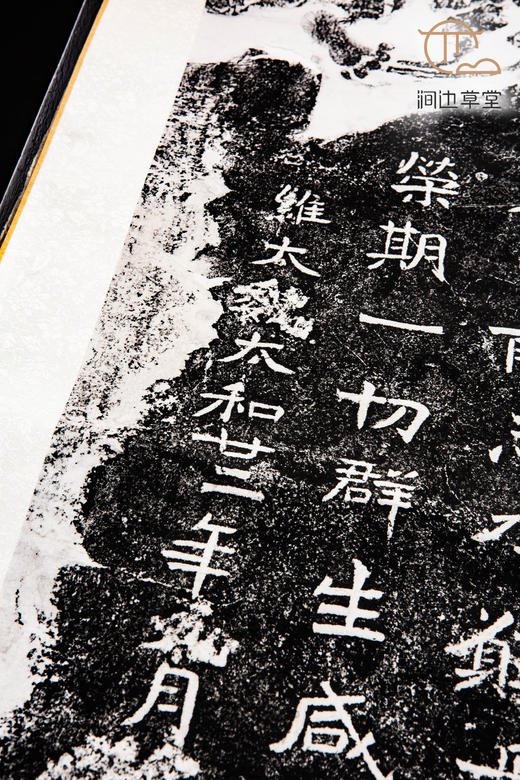 涧边草堂
榮期一切群生咸
維太魏太和廿二年月